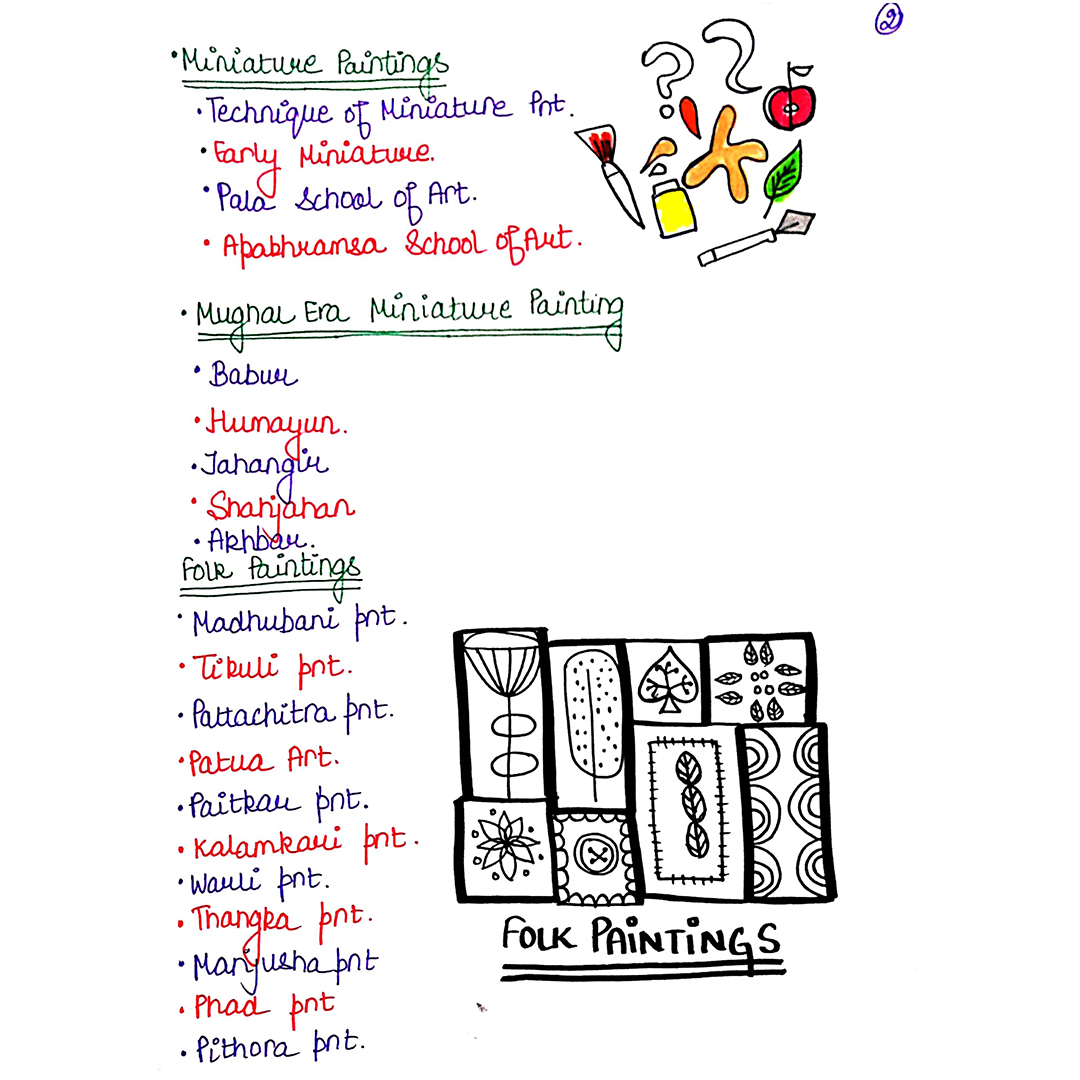 2
• Miniature Paintings
• Technique of Miniature Pnt.
• Early Miniature.
• Pala School of Art.
• Apabhramsa School of Art.
• Mughal Era Miniature Painting
• Babur
• Humayun.
• Jahangir
• Shahjahan
• Akhbar.
Folk Paintings
• Madhubani pnt.
• Tikuli pnt.
• Pattachitra pnt.
• Patua Art.
• Paitkar pnt.
• Kalamkari pnt.
• Warli pnt.
• Thangka pnt.
• Manjusha pnt
• Phad pnt
• Pithora pnt.
FOLK PAINTINGS